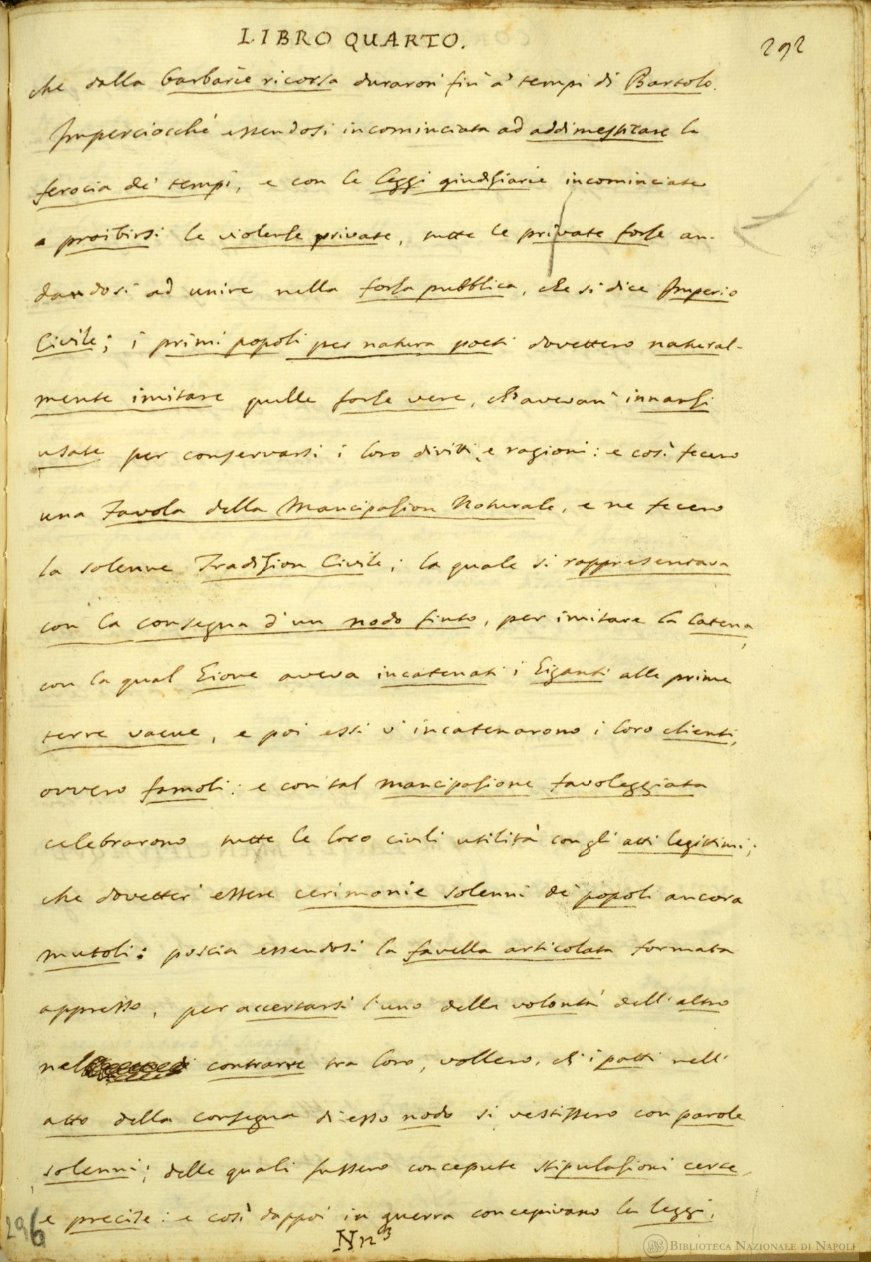 LIBRO QUARTO.
292
che dalla barbarie ricorsa duraron fin a' tempi di Bartolo.
Imperciocché essendosi incominciata ad addimesticare la
ferocia de' tempi, e con le leggi giudiziarie incominciate
a proibirsi le violenze private, tutte le private forze an-
dandosi ad unire nella forza pubblica, che si dice Imperio
Civile; i primi popoli per natura poeti dovettero natural-
mente imitare quelle forze vere, ch'avevan' innanzi
usate per conservarsi i loro diritti, e ragioni: e così fecero
una Favola della Mancipazion Naturale, e ne fecero
la solenne Tradizion Civile; la quale si rappresentava
con la consegna d'un nodo finto, per imitare la catena,
con la qual Giove aveva incatenati i Giganti alle prime
terre vacue, e poi essi v'incatenarono i loro clienti,
ovvero famoli: e con tal mancipazione favoleggiata
celebrarono tutte le loro civili utilità con gli atti legittimi;
che dovetter' essere cerimonie solenni de' popoli ancora
mutoli: poscia essendosi la favella articolata formata
appresso, per accertarsi l'uno della volontà dell'altro
nel contrarre tra loro, vollero, ch'i patti nell'
atto della consegna di esso nodo si vestissero con parole
solenni; delle quali fussero concepute stipulazioni certe,
e precise: e così dappoi in guerra concepivano le leggi,
296
Nn3
BIBLIOTECA NAZIONALE DI NAPOLI